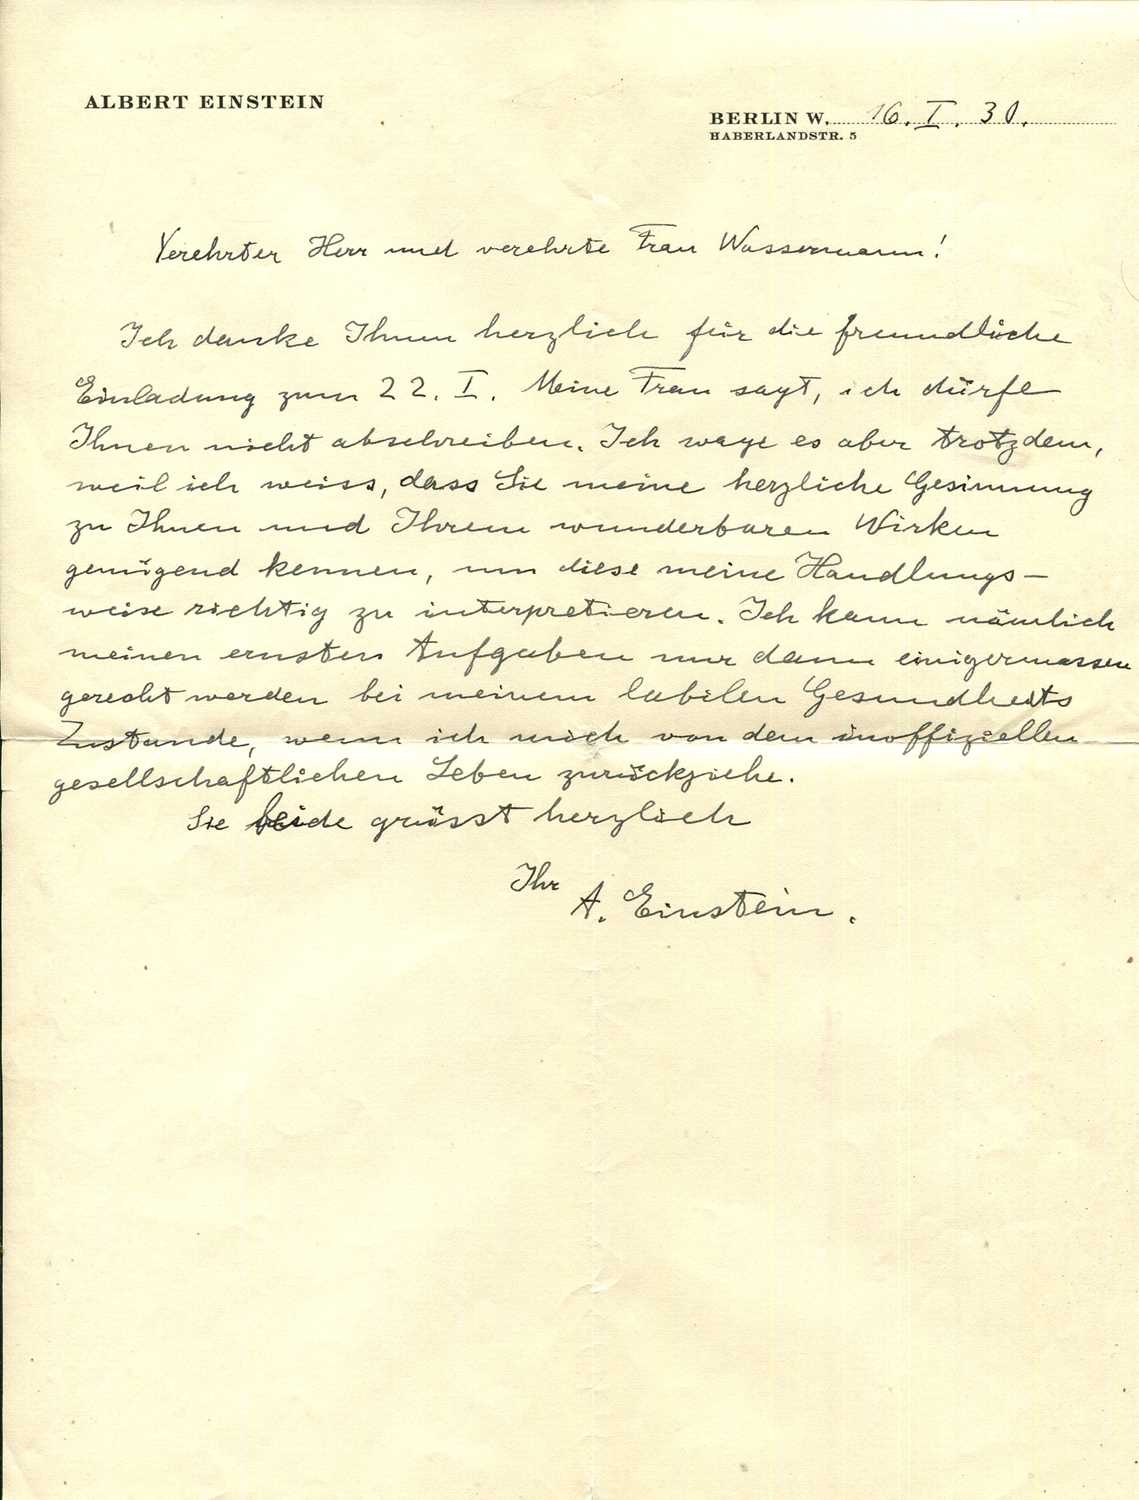 ALBERT EINSTEIN
BERLIN W. 16. I. 30.
HABERLANDSTR. 5
Verehrter Herr und verehrte Frau Wassermann!
Ich danke Ihnen herzlich für die freundliche
Einladung zum 22. I. Meine Frau sagt, ich dürfe
Ihnen nicht abschreiben. Ich wage es aber trotzdem,
weil ich weiss, dass Sie meine herzliche Gesinnung
zu Ihnen und Ihrem wunderbaren Wirken
genügend kennen, um diese meine Handlungs-
weise richtig zu interpretieren. Ich kann nämlich
meinen ernsten Aufgaben nur dann einigermassen
gerecht werden bei meinem labilen Gesundheits
Zustande, wenn ich mich von dem inoffiziellen
gesellschaftlichen Leben zurückziehe.
Sie beide grüsst herzlich
Ihr
A. Einstein.